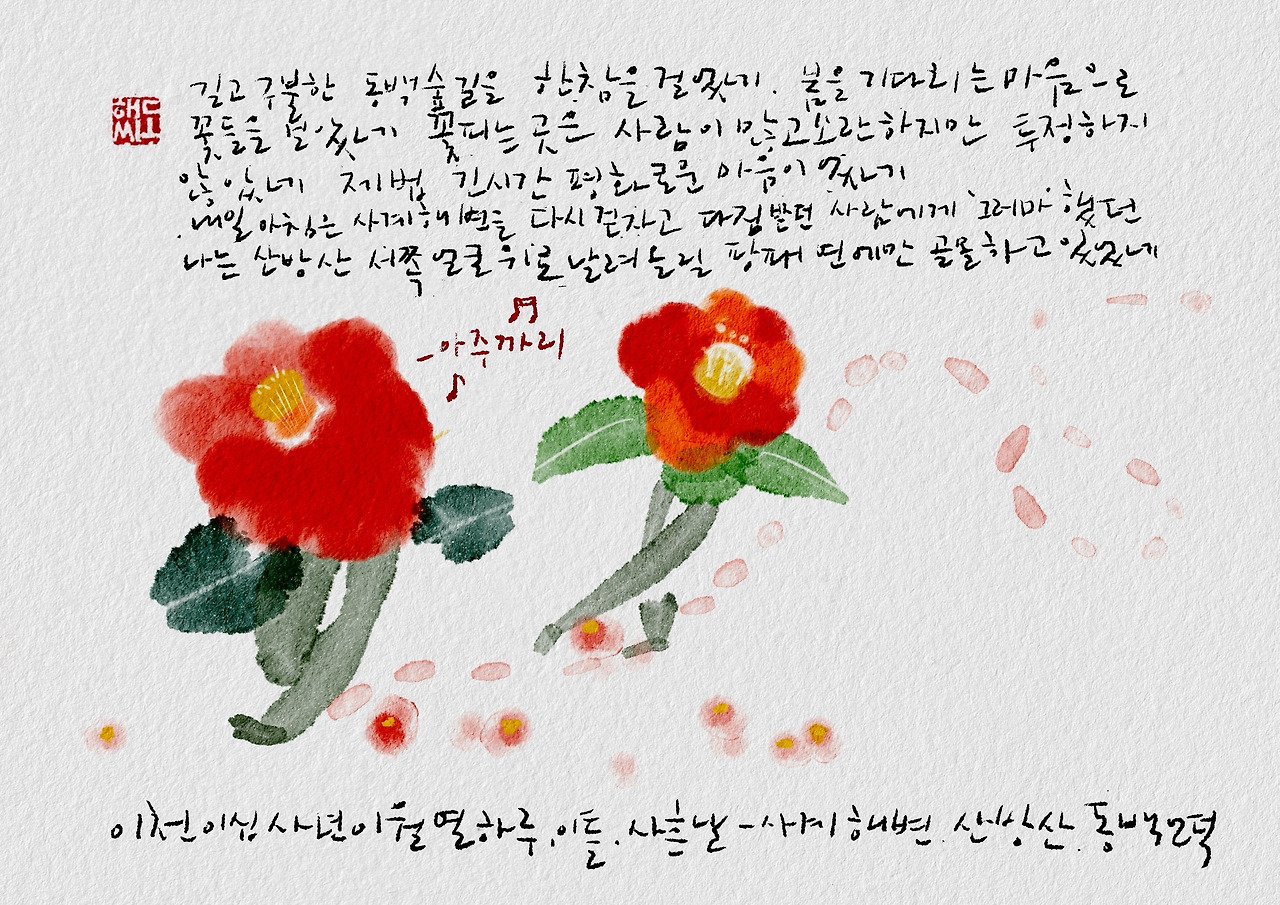 길고 구불한 동백숲길을 한참을 걸었네. 봄을 기다리는 마음으로
꽃들을 보았네 꽃피는 곳은 사람이 많고 소란하지만 투정하지
않았네 제법 긴시간 평화로운 마음이 였네
내일 아침은 사계해변을 다시 걷자고 다짐받던 사람에게 '그러마' 했던
나는 산방산 서쪽 얼굴 위로 날려 놀릴 방패 연에만 골몰하고 있었네
-아주까리
이천이십사년이월열하루,이틀,사흗날-사계해변.산방산.동백언덕